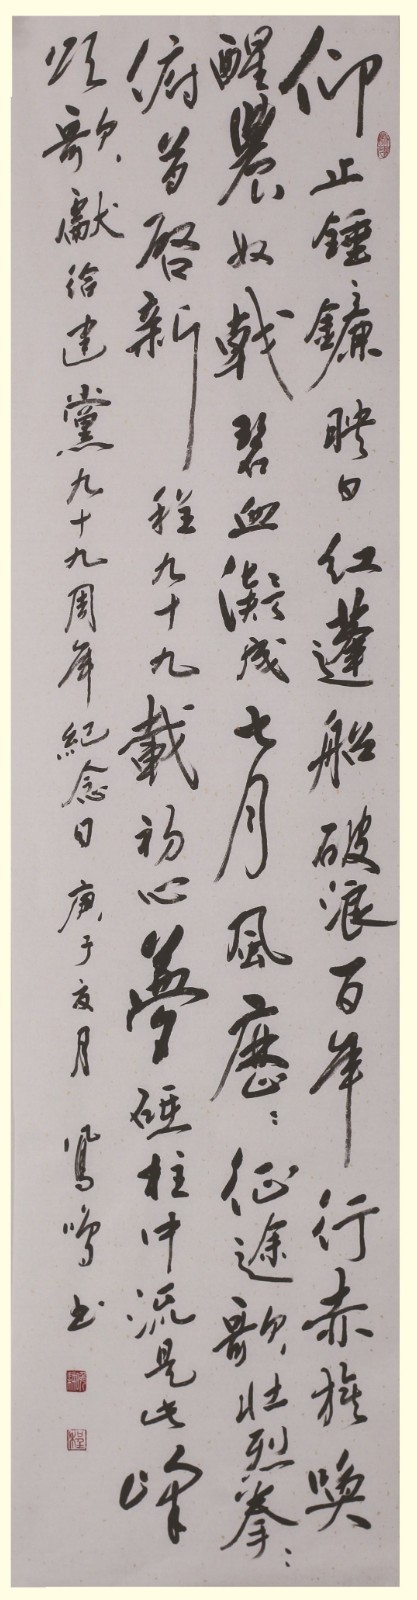 仰止錘鐮映日紅蓬船破浪百年行赤旗喚
醒農奴戟碧血凝成七月風歷〻征途歌壯烈拳〻
俯首啓新程九十九載初心夢砥柱中流是此峰
頌歌獻給建黨九十九周年紀念日 庚子夏月 鳳鳴書